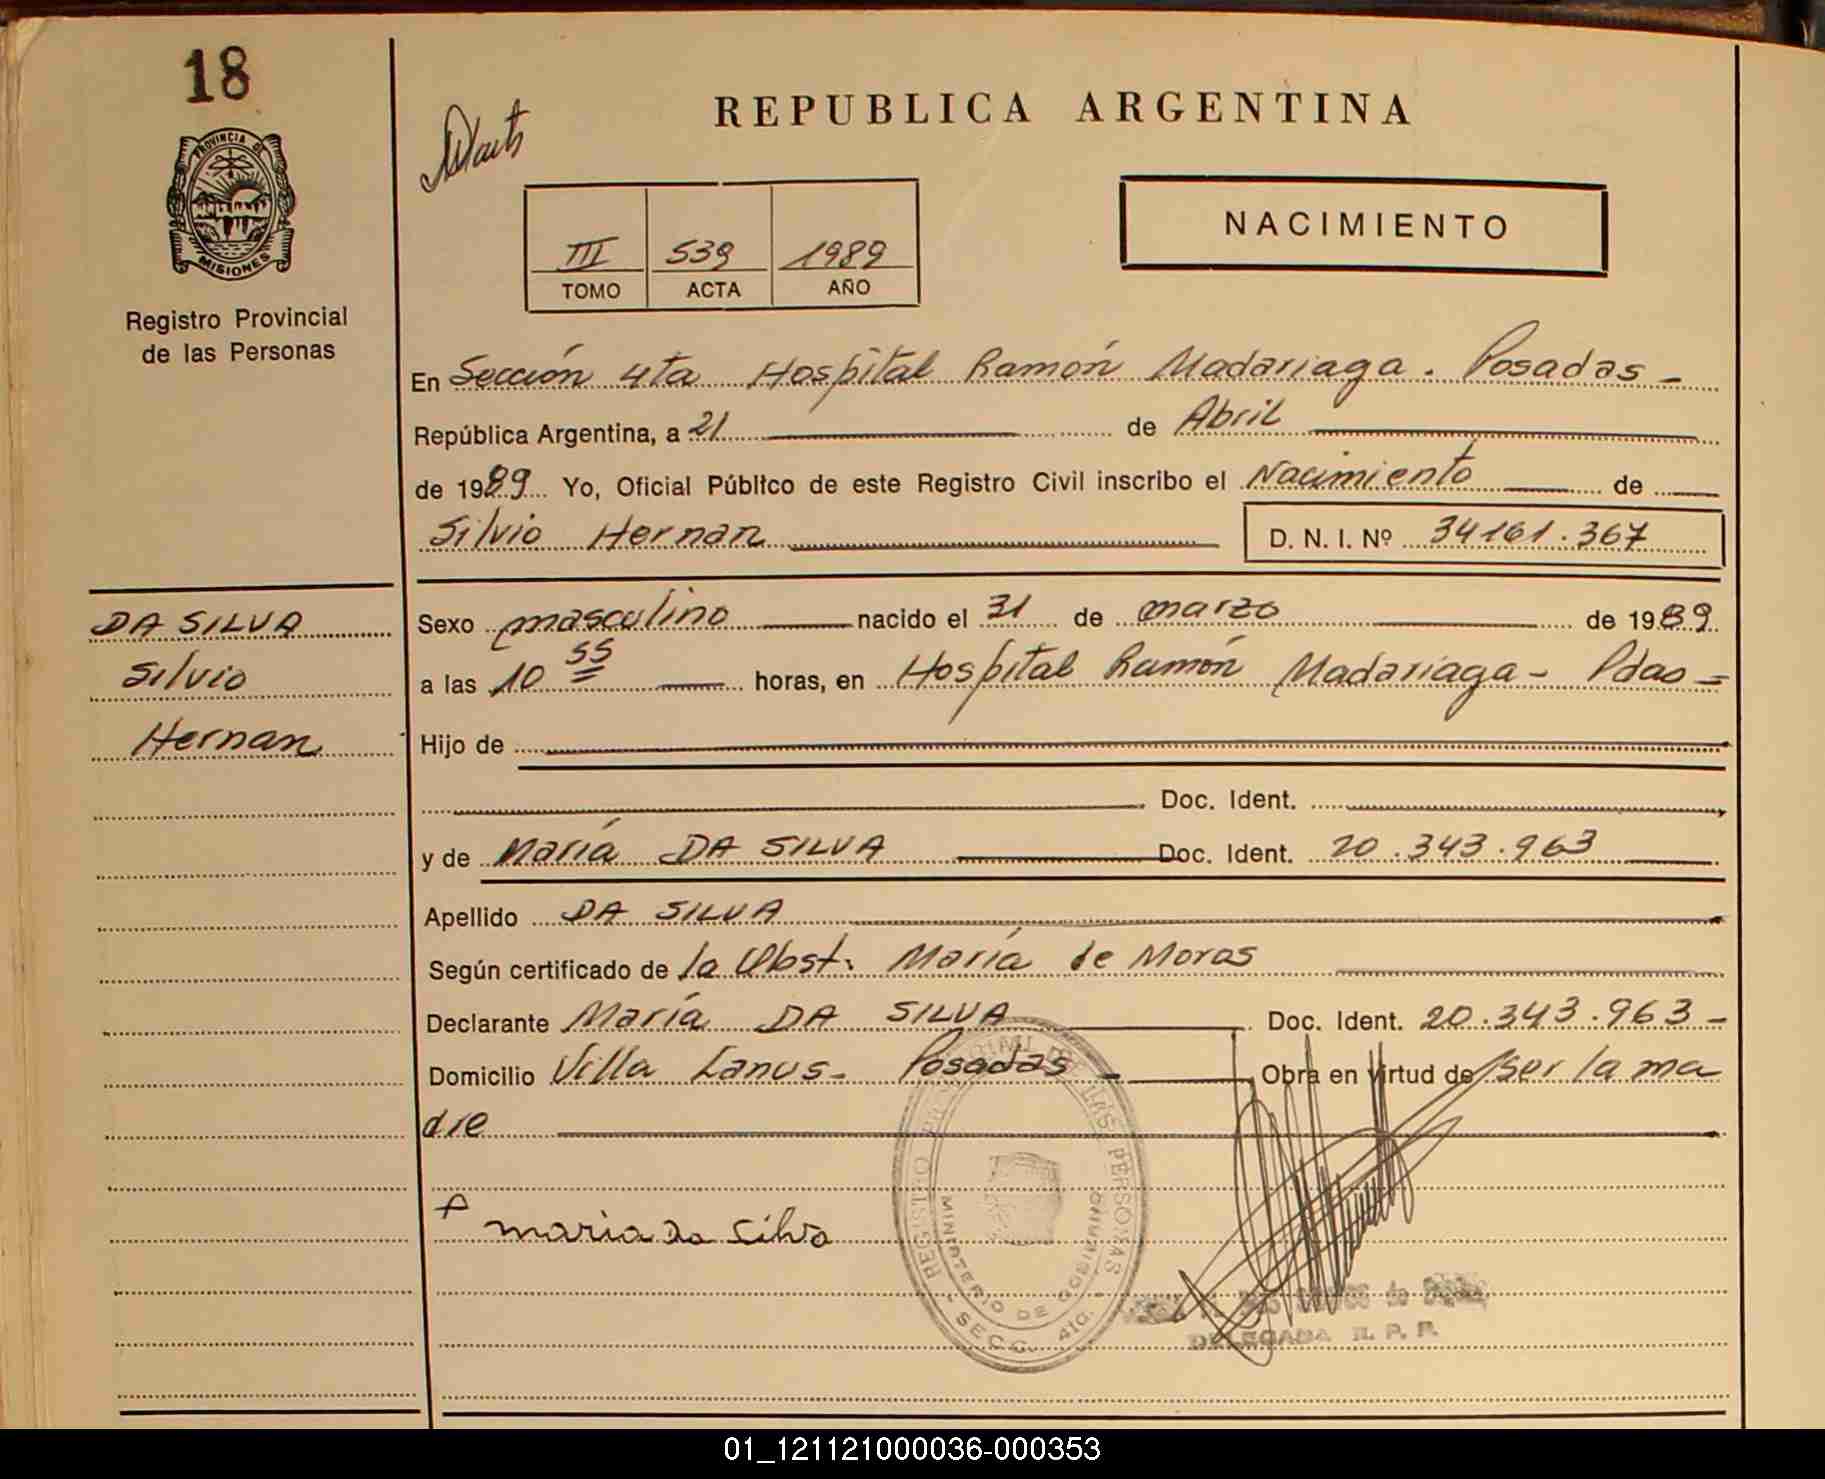 18
REPUBLICA ARGENTINA
PROVINCIA DE
MISIONES
Registro Provincial
de las Personas
III 539 1989
TOMO ACTA AÑO
NACIMIENTO
En Sección 4ta Hospital Ramón Madariaga. Posadas -
República Argentina, a 21 de Abril
de 1989 Yo, Oficial Público de este Registro Civil inscribo el Nacimiento de
Silvio Hernan D. N. I. Nº 34161.367
DA SILVA
Silvio
Hernan
Sexo masculino nacido el 31 de marzo de 1989
a las 10 55 horas, en Hospital Ramón Madariaga - Pdas =
Hijo de
Doc. Ident.
y de María DA SILVA Doc. Ident. 20.343.963
Apellido DA SILVA
Según certificado de la Obst. María de Moras
Declarante María DA SILVA Doc. Ident. 20.343.963 -
Domicilio Villa Lanus - Posadas - Obra en virtud de ser la ma
dre
maria da Silva
REGISTRO DE LAS PERSONAS
MINISTERIO DE GOBIERNO
SECC. 4ta.
DELEGADA R. P. P.
01_121121000036-000353